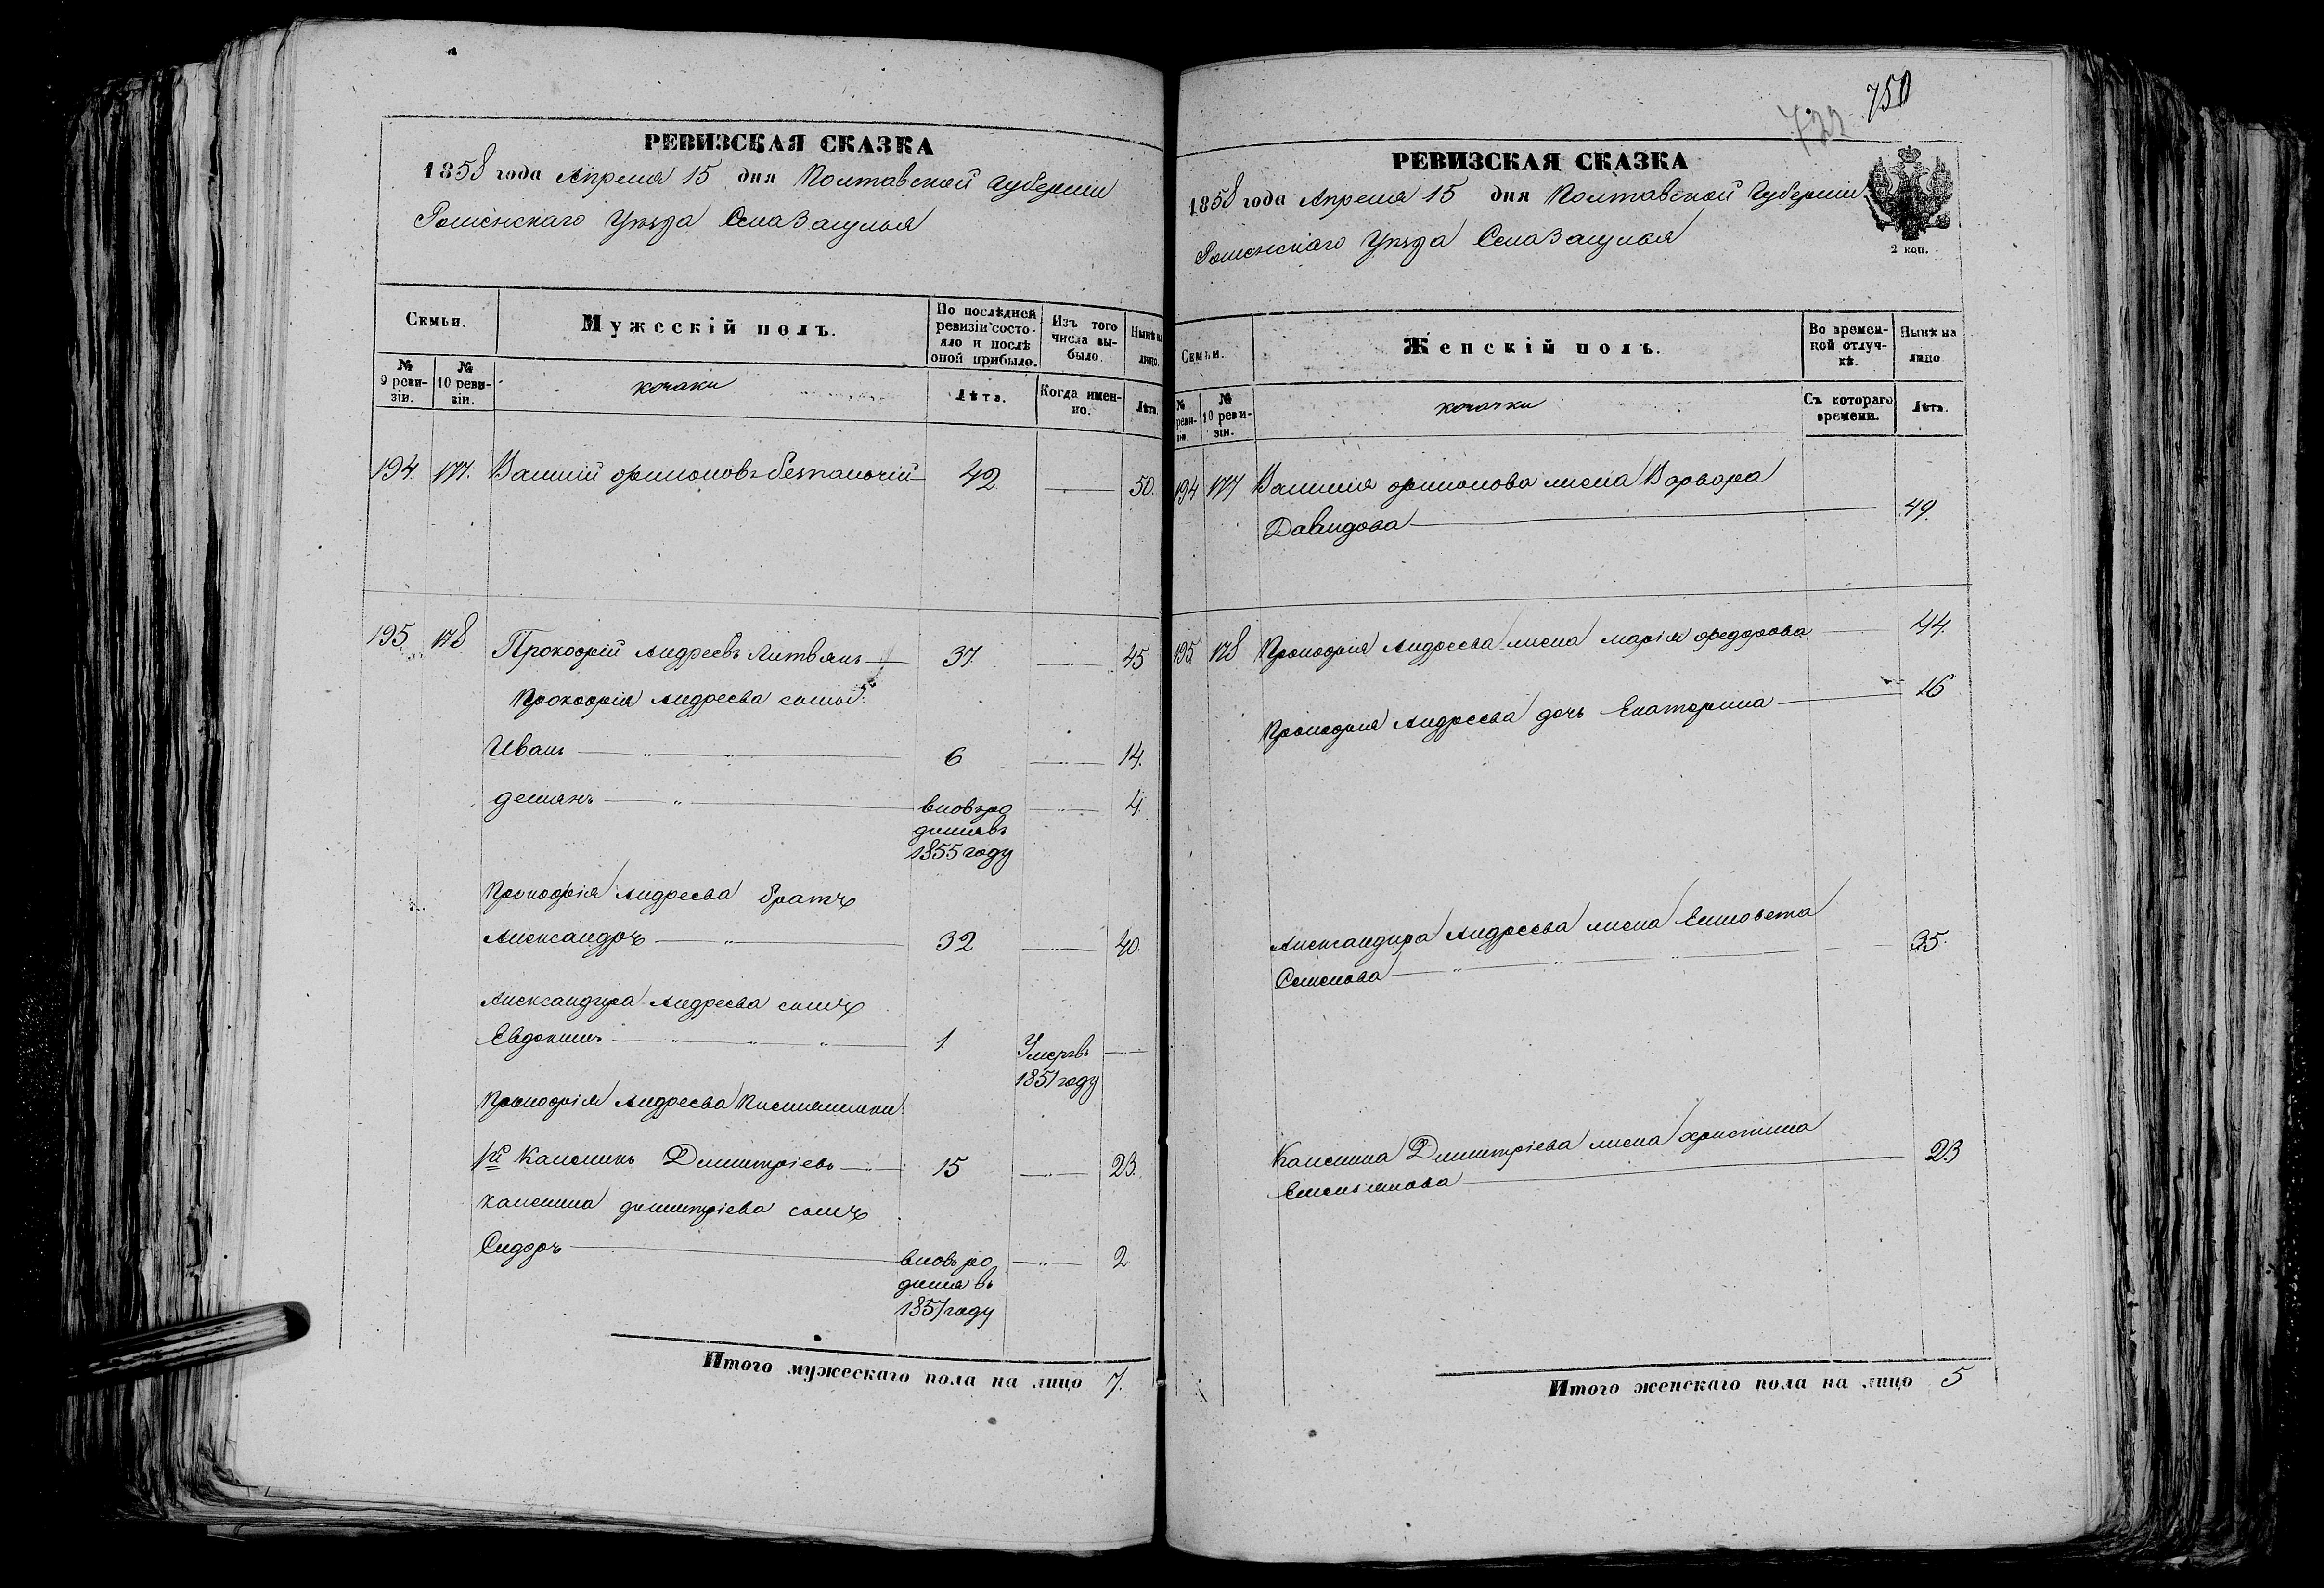 РЕВИЗСКАЯ СКАЗКА
1858 года Апреля 15 дня Полтавской Губерніи
Роменскаго Уѣзда Села
Семьи.
Мужескій полъ.
По послѣдней ревизіи состояло и послѣ оной прибыло.
Изъ того числа выбыло.
Нынѣ на лицо.
№ 9 ревизіи.
№ 10 ревизіи.
козаки
Лѣта.
Когда именно.
Лѣта.
194. 177. 42 50.
195. 178 Прокофій Андреевъ Литвинъ 37. 45
Прокофія Андреева сыны:
Иванъ 6 14.
Демянъ вновьро 4.
дилсявъ
1855 году
Прокофія Андреева братъ
Александръ 32 40.
Александра Андреева сынъ
Евдокимъ 1 Умеръвъ
1851 году
Прокофія Андреева Племянники:
1й Калиникъ Димитріевъ 15 23.
Димитріева сынъ
Сидоръ вновьро 2
дился въ
1857 году
Итого мужескаго пола на лицо 7.
750
722
РЕВИЗСКАЯ СКАЗКА
1858 года Апреля 15 дня Полтавской Губерніи
Роменскаго Уѣзда Села
2 коп.
Семьи.
Женскій полъ.
Во временной отлучкѣ.
Нынѣ на лицо.
№ ревизіи.
№ 10 ревизіи.
козачки
Съ котораго времени.
Лѣта.
194 177 жена Варвара
Давидова 49.
195 178 Прокофія Андреева жена Марія Федорова 44.
Прокофія Андреева дочь Екатерина 16
Александра Андреева жена Елисовета
Семенова 35.
Димитріева жена Христина
Емельянова 23
Итого женскаго пола на лицо 5